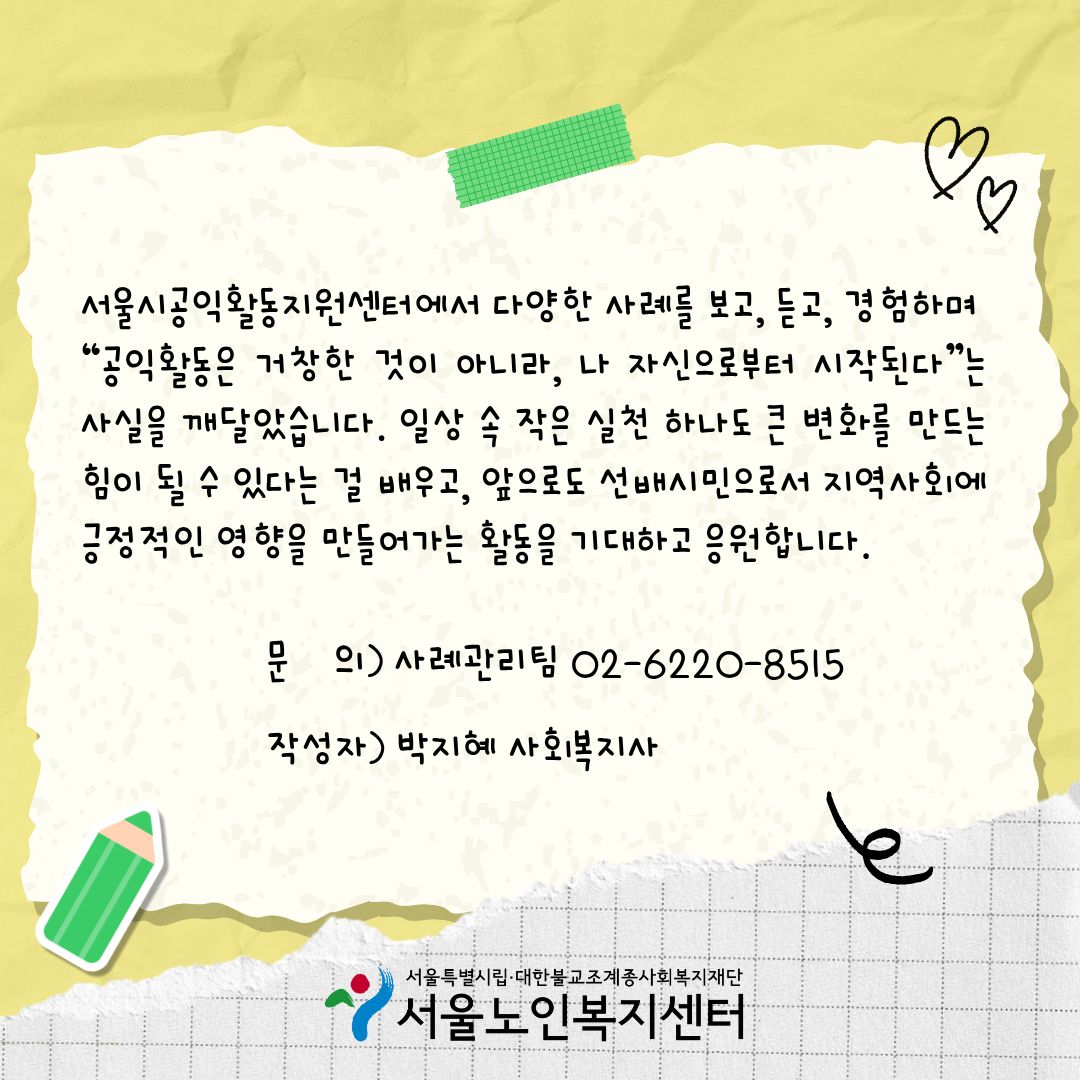 서울시공익활동지원센터에서 다양한 사례를 보고, 듣고, 경험하며
“공익활동은 거창한 것이 아니라, 나 자신으로부터 시작된다”는
사실을 깨달았습니다. 일상 속 작은 실천 하나도 큰 변화를 만드는
힘이 될 수 있다는 걸 배우고, 앞으로도 선배시민으로서 지역사회에
긍정적인 영향을 만들어가는 활동을 기대하고 응원합니다.
문 의) 사례관리팀 02-6220-8515
작성자) 박지혜 사회복지사
서울특별시립·대한불교조계종사회복지재단
서울노인복지센터